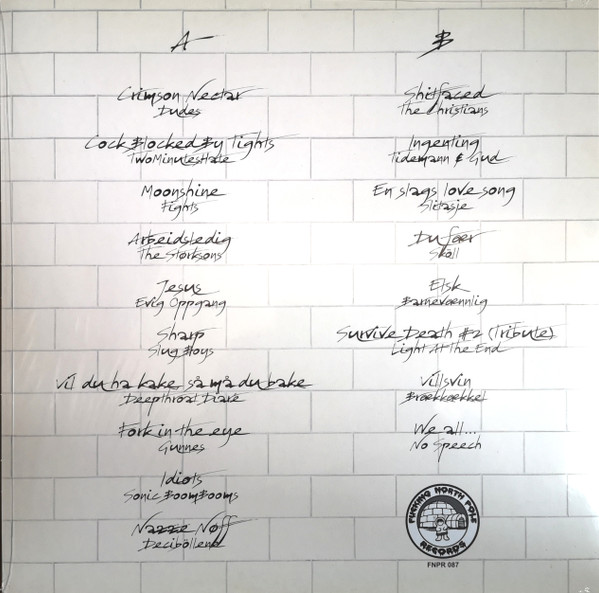 A
Crimson Nectar
Dudes
Cock Blocked By Tights
TwoMinutesHate
Moonshine
Fights
Arbeidsledig
The Storksons
Jesus
Evig Oppgang
Sharp
Slug Boys
vil du ha kake, så må du bake
Deepthroat Diaré
Fork in the eye
Gunnes
Idiots
Sonic BoomBooms
Nazze Nøff
Decibøllene
B
Shitfaced
The Christians
Ingenting
Tidemann & Gud
En slags love song
Slitasje
Du foer
Skoll
Elsk
Barnevoennlig
Survive Death #2 (Tribute)
Light At The End
Villsvin
Broekkoekkel
We all...
No Speech
FUCKING NORTH POLE
RECORDS
FNPR 087